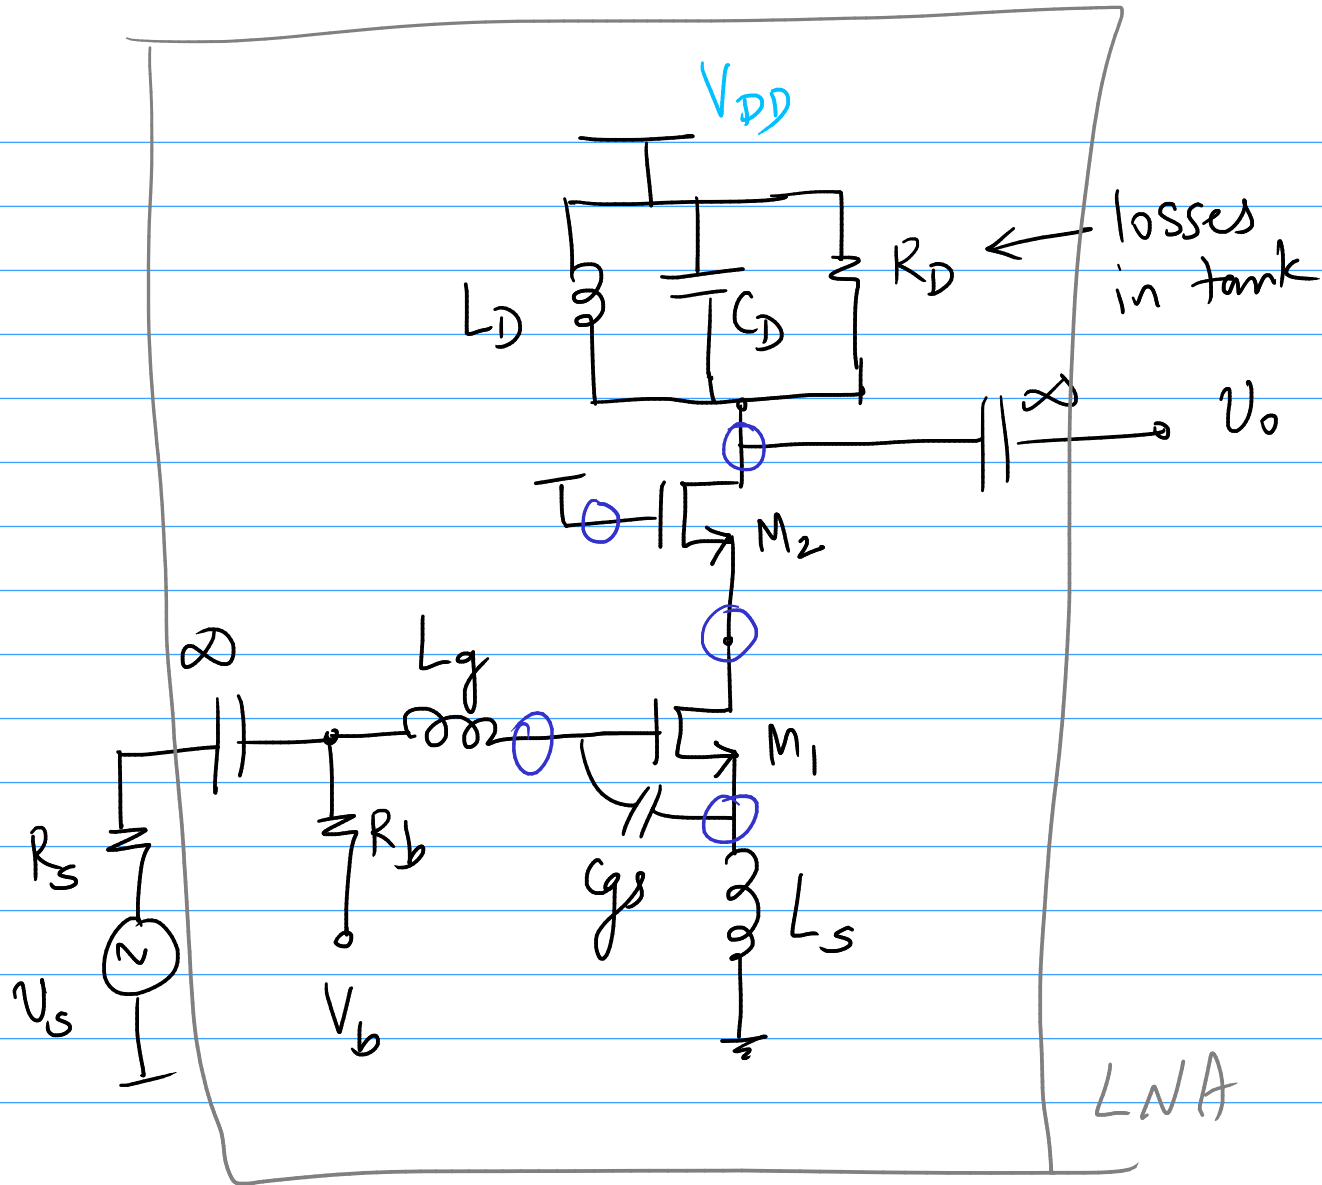 V_DD
L_D
C_D
R_D
losses
in tank
∞
v_o
M_2
∞
L_g
M_1
R_s
R_b
C_gs
L_s
v_s
V_b
LNA